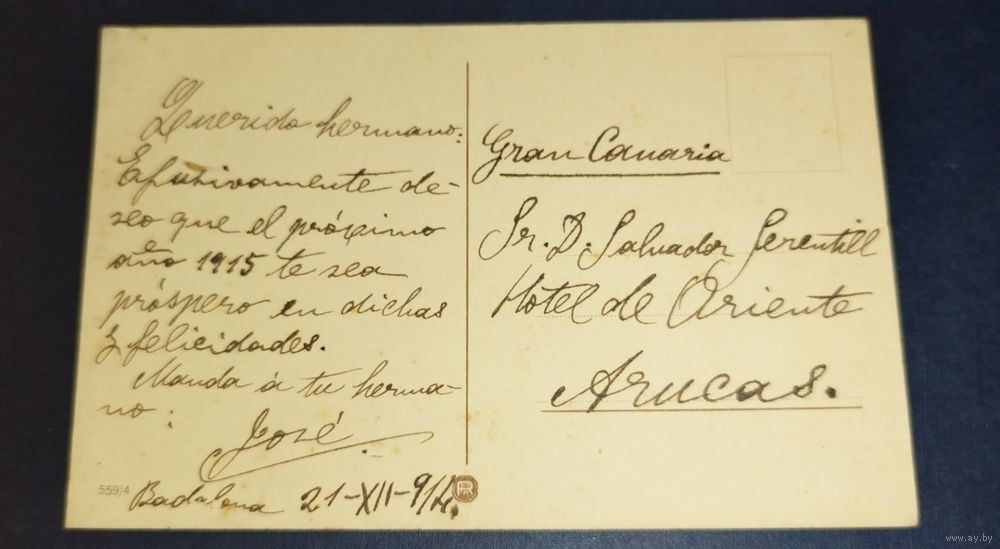 Querido hermano:
Efusivamente de-
seo que el próximo
año 1915 te sea
próspero en dichas
y felicidades.
Manda á tu herma-
no:
José
Badalona 21-XII-914.
559/4
Gran Canaria
Sr. D. Salvador
Hotel de Oriente
Arucas.
www.ay.by